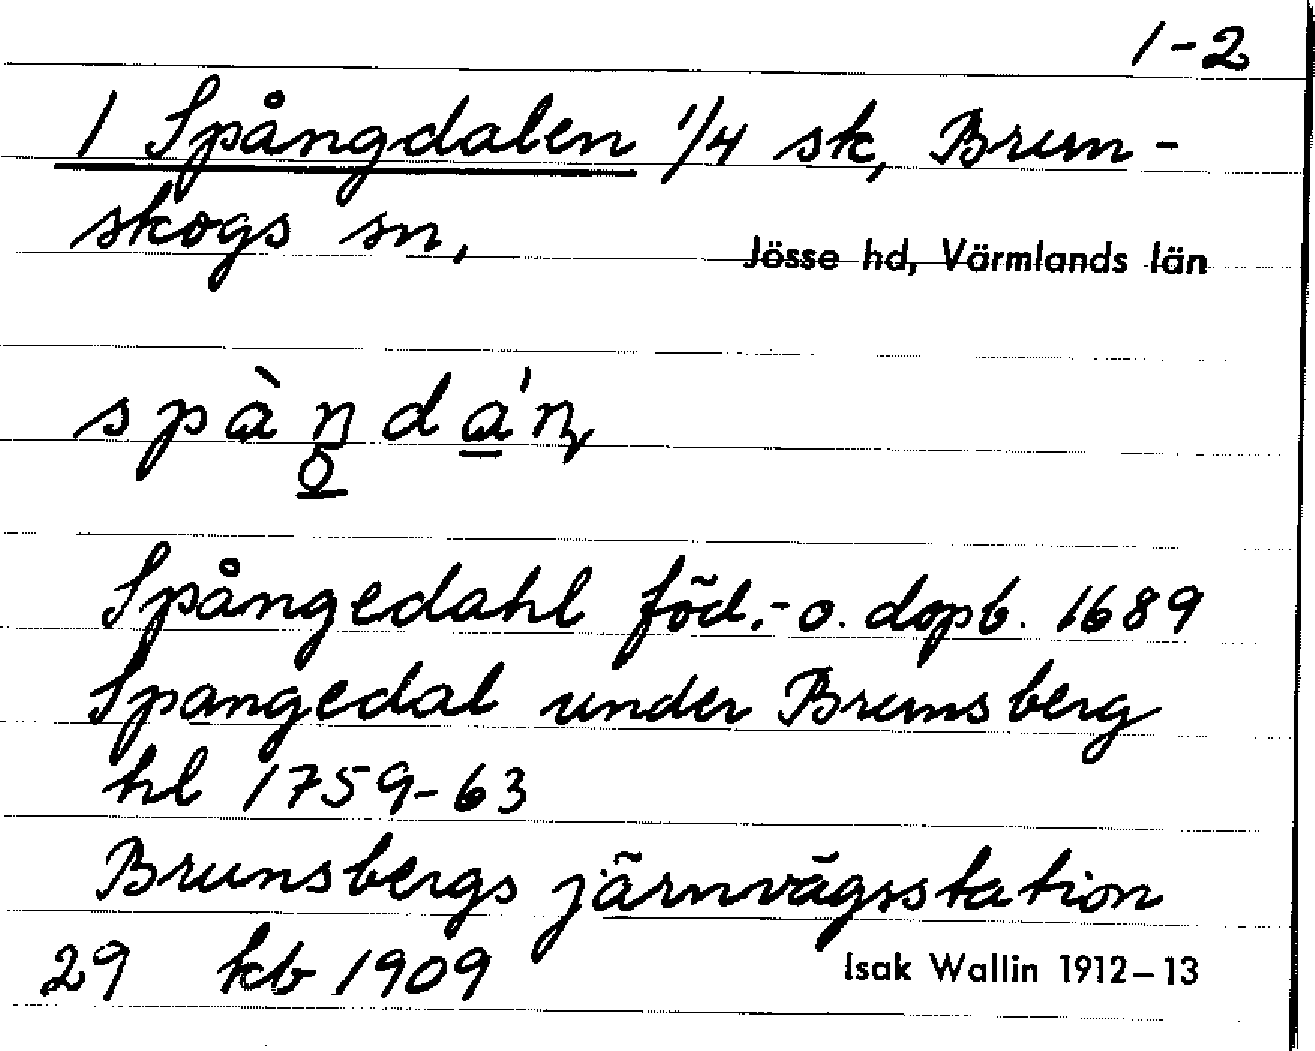 1-2
1 Spångdalen 1/4 sk, Brun-
skogs sn,
Jösse hd, Värmlands län
Spångedahl föd.- o. dopb. 1689
Spangedal under Brunsberg
hl 1759-63
Brunsbergs järnvägsstation
29 kb 1909
Isak Wallin 1912–13